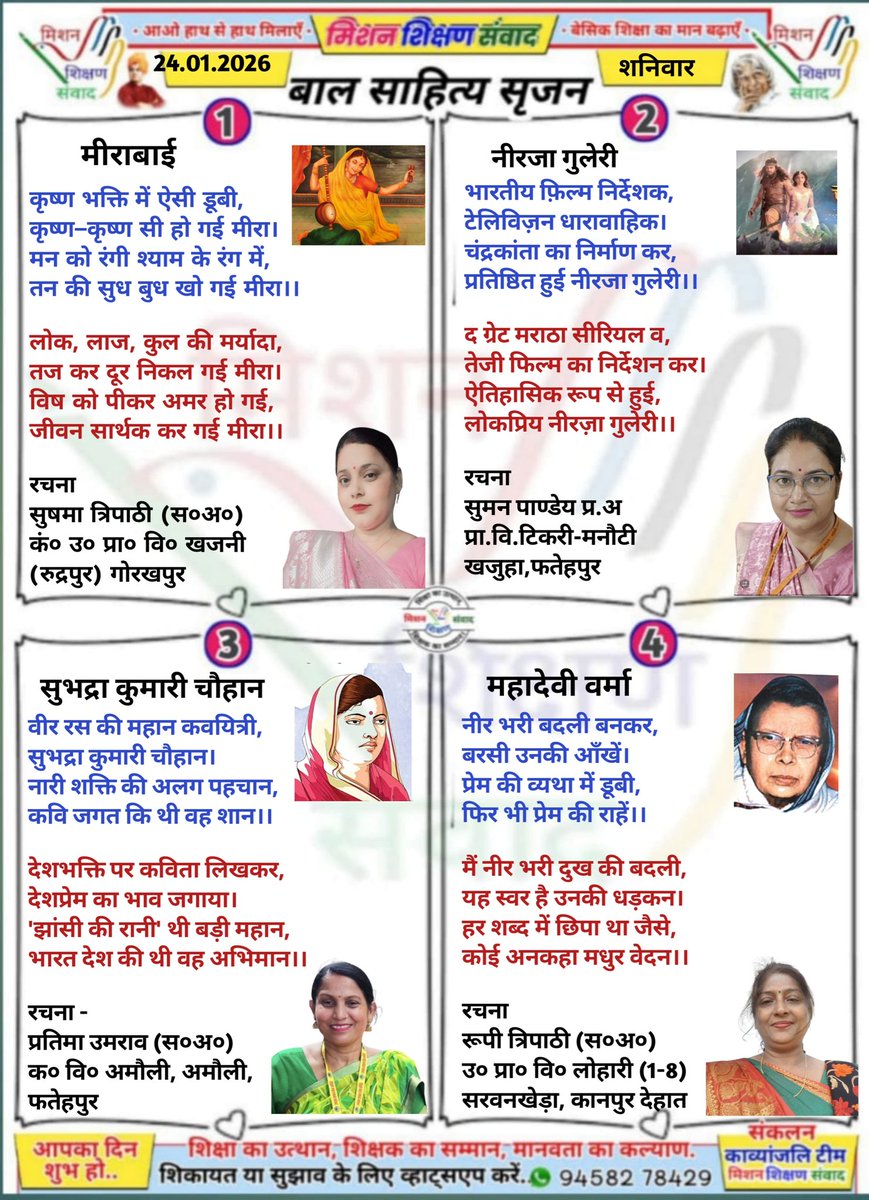 मिशन
शिक्षण
संवाद
· आओ हाथ से हाथ मिलाएँ ·
मिशन शिक्षण संवाद
· बेसिक शिक्षा का मान बढ़ाएँ ·
मिशन
शिक्षण
संवाद
24.01.2026
शनिवार
बाल साहित्य सृजन
1
मीराबाई
कृष्ण भक्ति में ऐसी डूबी,
कृष्ण–कृष्ण सी हो गई मीरा।
मन को रंगी श्याम के रंग में,
तन की सुध बुध खो गई मीरा।।
लोक, लाज, कुल की मर्यादा,
तज कर दूर निकल गई मीरा।
विष को पीकर अमर हो गई,
जीवन सार्थक कर गई मीरा।।
रचना
सुषमा त्रिपाठी (स०अ०)
कं० उ० प्रा० वि० खजनी
(रुद्रपुर) गोरखपुर
2
नीरजा गुलेरी
भारतीय फ़िल्म निर्देशक,
टेलिविज़न धारावाहिक।
चंद्रकांता का निर्माण कर,
प्रतिष्ठित हुई नीरजा गुलेरी।।
द ग्रेट मराठा सीरियल व,
तेजी फिल्म का निर्देशन कर।
ऐतिहासिक रूप से हुई,
लोकप्रिय नीरज़ा गुलेरी।।
रचना
सुमन पाण्डेय प्र.अ
प्रा.वि.टिकरी-मनौटी
खजुहा,फतेहपुर
मिशन
शिक्षण
संवाद
मिशन संवाद
शिक्षण
3
सुभद्रा कुमारी चौहान
वीर रस की महान कवयित्री,
सुभद्रा कुमारी चौहान।
नारी शक्ति की अलग पहचान,
कवि जगत कि थी वह शान।।
देशभक्ति पर कविता लिखकर,
देशप्रेम का भाव जगाया।
'झांसी की रानी' थी बड़ी महान,
भारत देश की थी वह अभिमान।।
रचना -
प्रतिमा उमराव (स०अ०)
क० वि० अमौली, अमौली,
फतेहपुर
4
महादेवी वर्मा
नीर भरी बदली बनकर,
बरसी उनकी आँखें।
प्रेम की व्यथा में डूबी,
फिर भी प्रेम की राहें।।
मैं नीर भरी दुख की बदली,
यह स्वर है उनकी धड़कन।
हर शब्द में छिपा था जैसे,
कोई अनकहा मधुर वेदन।।
रचना
रूपी त्रिपाठी (स०अ०)
उ० प्रा० वि० लोहारी (1-8)
सरवनखेड़ा, कानपुर देहात
आपका दिन
शुभ हो..
शिक्षा का उत्थान, शिक्षक का सम्मान, मानवता का कल्याण.
शिकायत या सुझाव के लिए व्हाट्सएप करें.. 94582 78429
संकलन
काव्यांजलि टीम
मिशन शिक्षण संवाद